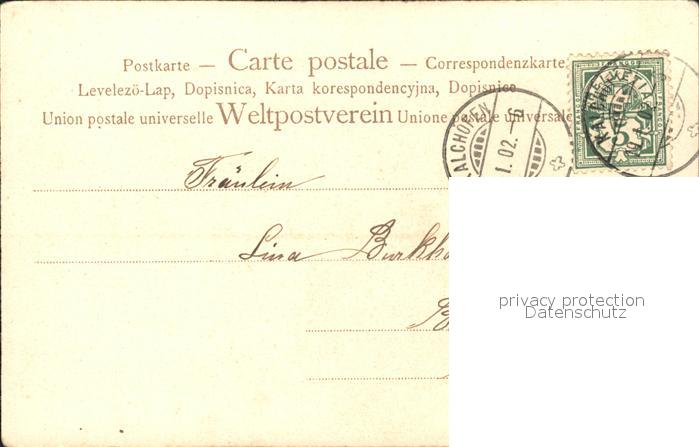 Postkarte — Carte postale — Correspondenzkarte
Levelezö-Lap, Dopisnica, Karta korespondencyjna, Dopisnice
Union postale universelle Weltpostverein Unione postale universale
HELVETIA
5
I. 02. –6
Fräulein
Lina Burkh
B
privacy protection
Datenschutz